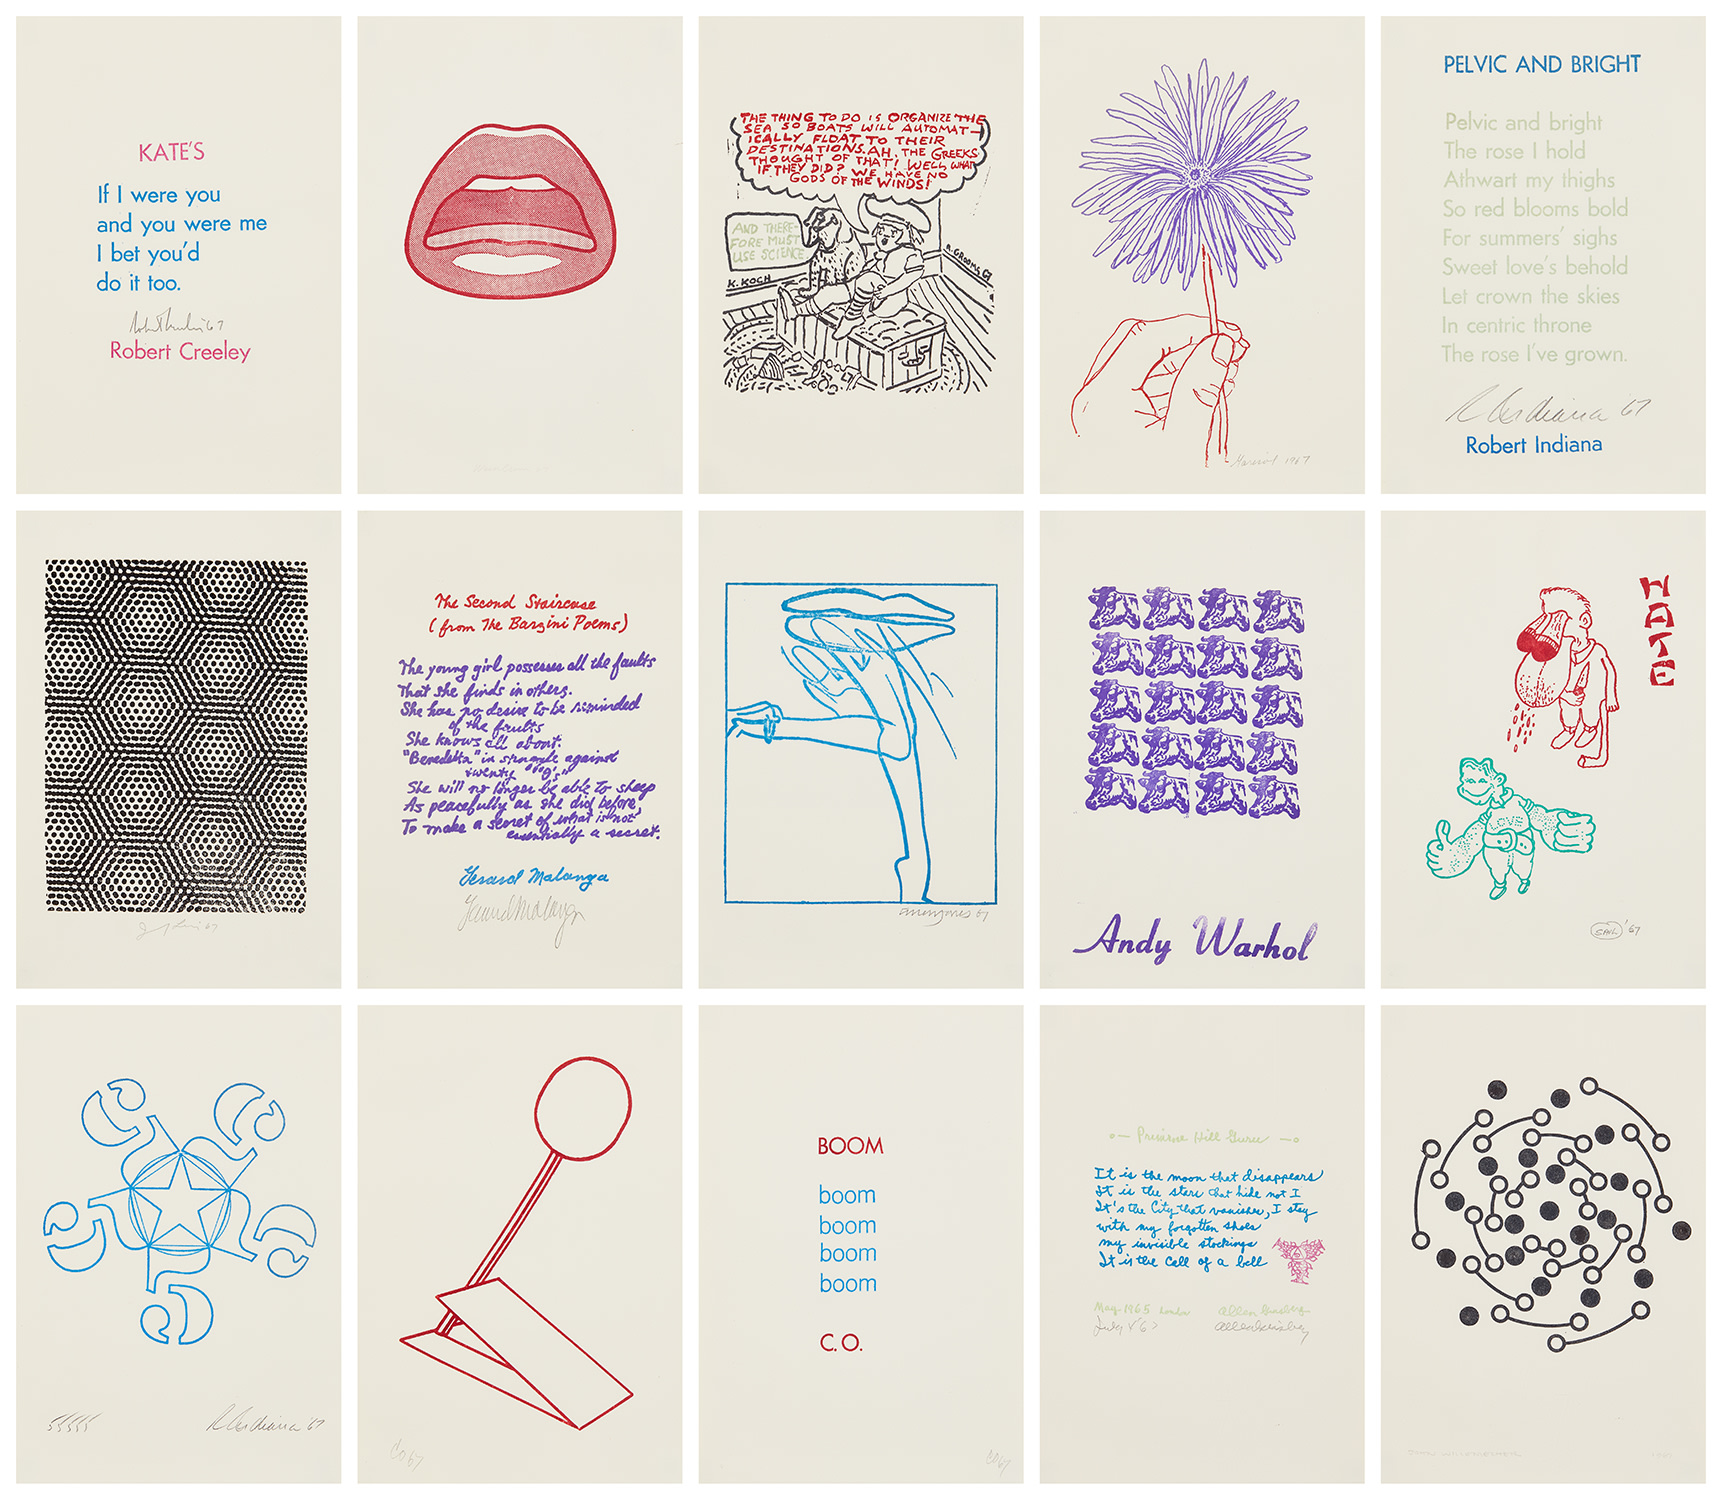 KATE'S
If I were you
and you were me
I bet you'd
do it too.
Robert Creeley
THE THING TO DO IS ORGANIZE THE
SEA SO BOATS WILL AUTOMAT-
ICALLY FLOAT TO THEIR
DESTINATIONS. AH, THE GREEKS
THOUGHT OF THAT! WELL WHAT
IF THEY DID? WE HAVE NO
GODS OF THE WINDS!
AND THERE-
FORE MUST
USE SCIENCE.
K. KOCH
R. GROOMS 67
Marisol 1967
PELVIC AND BRIGHT
Pelvic and bright
The rose I hold
Athwart my thighs
So red blooms bold
For summers' sighs
Sweet love's behold
Let crown the skies
In centric throne
The rose I've grown.
R Indiana '67
Robert Indiana
The Second Staircase
(from The Barzini Poems)
The young girl possesses all the faults
That she finds in others.
She has no desire to be reminded
of the faults
She knows all about.
"Benedetta" in struggle against
twenty "9's"
She will no longer be able to sleep
As peacefully as she did before,
To make a secret of what is not
essentially a secret.
Gerard Malanga
Gerard Malanga
Allen Jones 67
Andy Warhol
HATE
LOVE
SAUL '67
55555
R Indiana '67
CO 67
BOOM
boom
boom
boom
boom
C. O.
CO 67
Primrose Hill Guru
It is the moon that disappears
It is the stars that hide not I
It's the City that vanishes, I stay
with my forgotten shoes
my invisible stockings
It is the call of a bell
May 1965 London
Allen Ginsberg
July 67
Allen Ginsberg
JOHN WILLENBECHER
1967